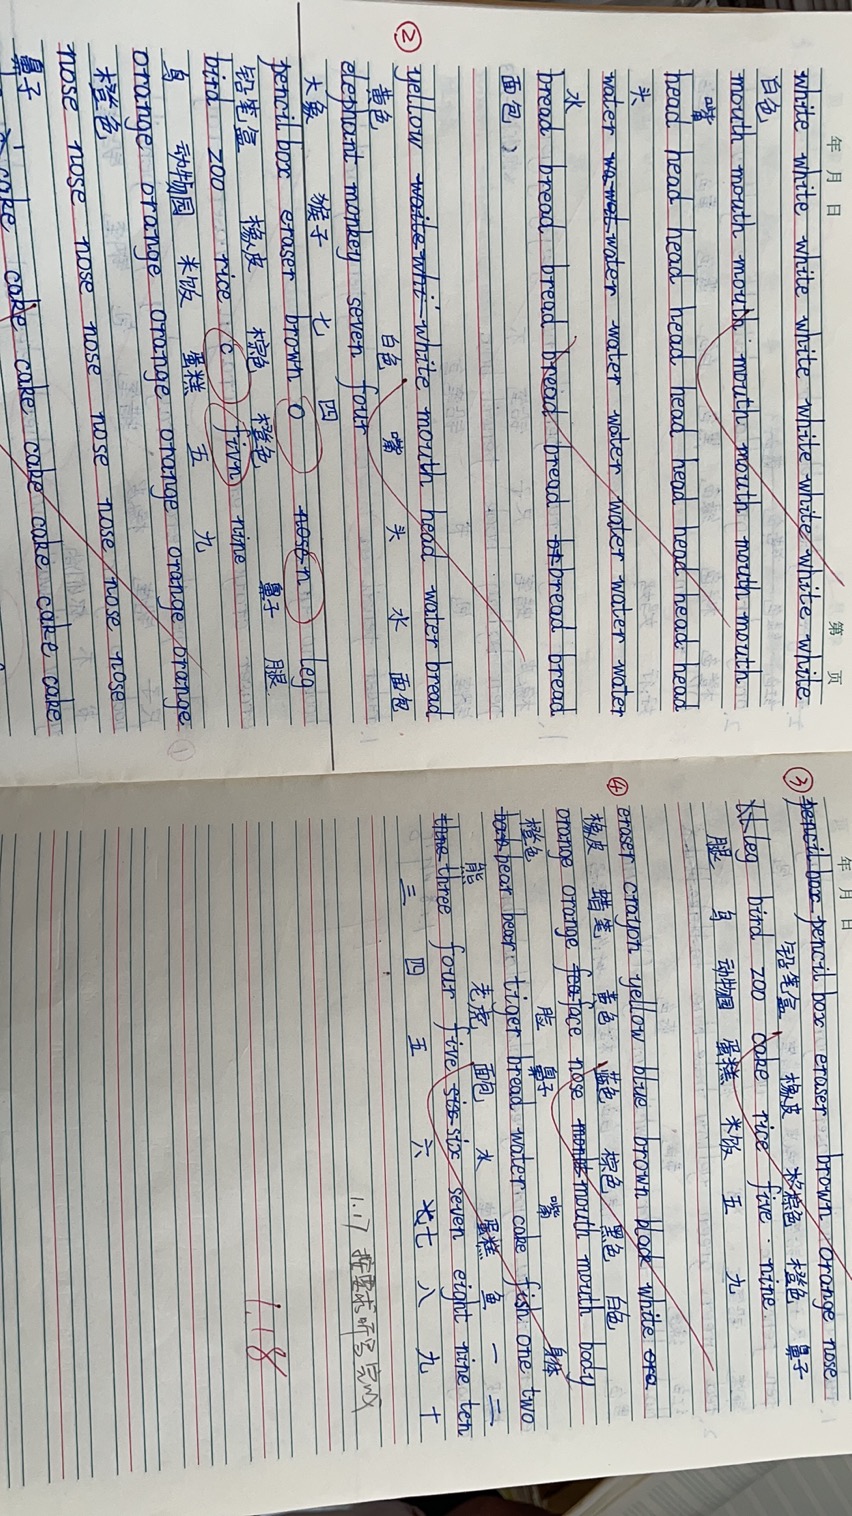 年 月 日
第 页
white white white white white white white white white
白色
mouth mouth mouth mouth mouth mouth mouth mouth
嘴
head head head head head head head head head head
头
water wa wat water water water water water water water
水
bread bread bread bread bread bread bread bread
面包
②
yellow white whi white mouth head water bread
黄色 白色 嘴 头 水 面包
elephant monkey seven four
大象 猴子 七 四
pencil box eraser brown O nose n leg
铅笔盒 橡皮 棕色 橙色 鼻子 腿
bird zoo rice c fivn nine
鸟 动物园 米饭 蛋糕 五 九
orange orange orange orange orange orange orange
橙色
nose nose nose nose nose nose nose nose nose
鼻子
cake cake cake cake cake cake cake cake
①
年 月 日
③
pencil box pencil box eraser brown orange nose
铅笔盒 橡皮 棕色 橙色 鼻子
leg bird zoo cake rice five nine
腿 鸟 动物园 蛋糕 米饭 五 九
④
eraser crayon yellow blue brown black white ora
橡皮 蜡笔 黄色 蓝色 棕色 黑色 白色
orange orange face nose mouth mouth body
橙色 脸 鼻子 嘴 身体
bear bear tiger bread water cake fish one two
熊 老虎 面包 水 蛋糕 鱼 一 二
three four five six six seven eight nine ten
三 四 五 六 七 八 九 十
1.17 按要求听写完成
1.18